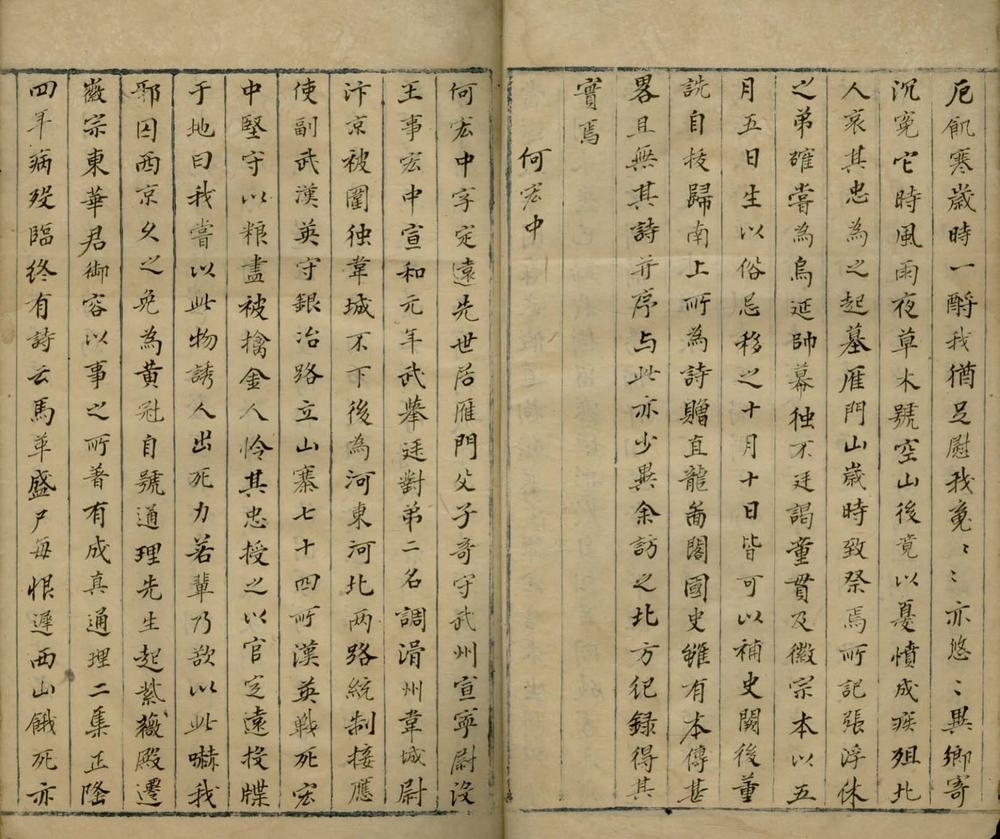 厄飢寒歲時一酹我猶足慰我冤〻亦悠〻異鄉寄
沉冤它時風雨夜草木號空山後竟以憂憤成疾殂北
人哀其忠為之起墓雁門山歲時致祭焉所記張浮休
之弟確嘗為鳥延帥幕独不廷謁童貫及徽宗本以五
月五日生以俗忌移之十月十日皆可以補史闕後董
詵自拔歸南上所為詩贈直龍啚閣國史雖有本傳甚
畧且無其詩并序与此亦少異余訪之北方纪録得其
實焉
何宏中
何宏中字定遠先世居雁門父子竒守武州宣寧尉没
王事宏中宣和元年武舉廷對弟二名調滑州韋城尉
汴京被圍独韋城不下後為河東河北两路統制接應
使副武漢英守銀冶路立山寨七十四所漢英戰死宏
中堅守以粮盡被擒金人怜其忠授之以官定遠投牒
于地曰我嘗以此物誘人出死力若輩乃欲以此嚇我
邪囚西京久之免為黄冠自號通理先生起紫薇殿遷
徽宗東華君御容以事之所著有成真通理二集正隆
四年病歿臨終有詩云馬革盛尸每恨遲西山餓死亦